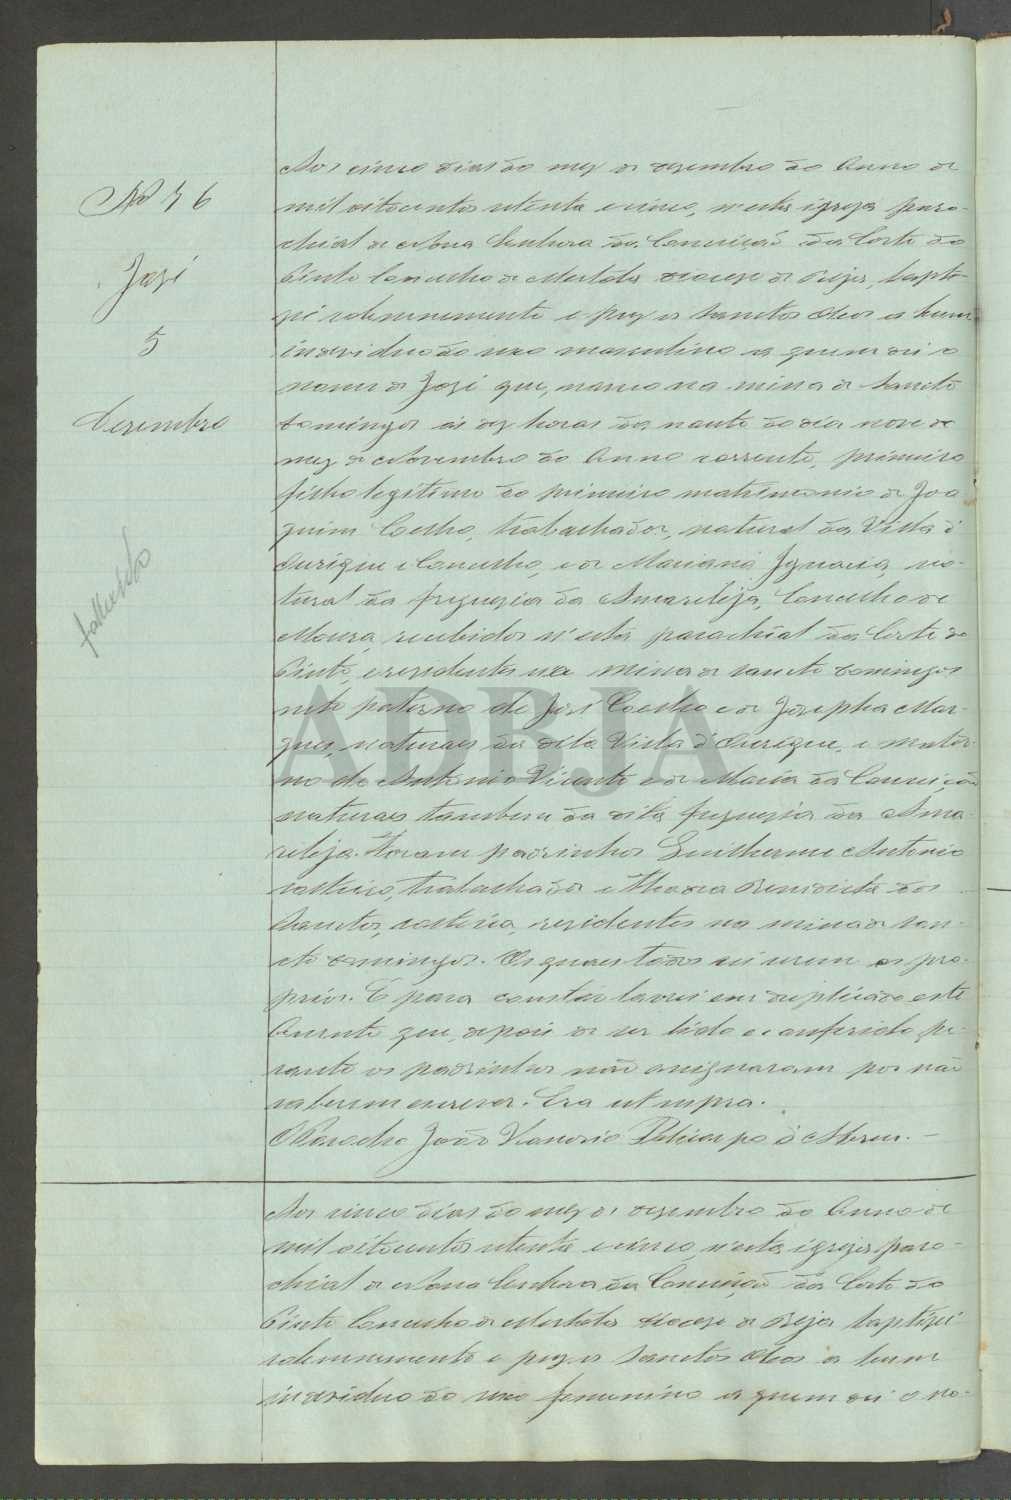 Nº 56
José
5
Dezembro
fallecido
Aos cinco dias do mez de dezembro do Anno de
mil oitocentos oitenta e cinco, n'esta igreja paro-
chial de Nossa Senhora da Conceição da Corte do
Pinto Concelho de Mertola diocese de Beja, bapti-
zei solemnemente e puz os Sanctos Oleos a hum
individuo do sexo masculino a quem dei o
nome de José que, nasceo na mina de Sancto
Domingos ás dez horas da noute do dia nove do
mez de Novembro do Anno corrente, primeiro
filho legitimo do primeiro matrimonio de Joa
quim Coelho, trabalhador, natural da Villa d'
Ourique e Concelho, e de Marianna Ignacia, na-
tural da freguezia da Amareleja, Concelho de
Moura, recebidos n'esta parochial da Corte do
Pinto, e residentes na mina de Sancto Domingos
neto paterno de José Coelho e de Josepha Mar-
ques, naturaes da dita Villa d'Ourique, e mater-
no de Antonio Vicente e de Maria da Conceição
naturaes tambem da dita freguezia da Ama-
releja. Foram padrinhos Guilherme Antonio
solteiro, trabalhador e Maria Benedicta dos
Sanctos, solteira, residentes na mina de San-
cto Domingos. Os quaes todos sei serem os pro-
prios. E para constar lavrei em duplicado este
Assento que, depois de ser lido e conferido pe-
rante os padrinhos não assignaram por não
saberem escrever. Era ut supra.
O Parocho João Vianorio Policarpo d'Abreu. —
Aos cinco dias do mez de dezembro do Anno de
mil oitocentos oitenta e cinco, n'esta igreja paro-
chial de Nossa Senhora da Conceição da Corte do
Pinto Concelho de Mertola diocese de Beja baptizei
solemnemente e puz os Sanctos Oleos a hum
individuo do sexo femenino a quem dei o no-
ADBJA